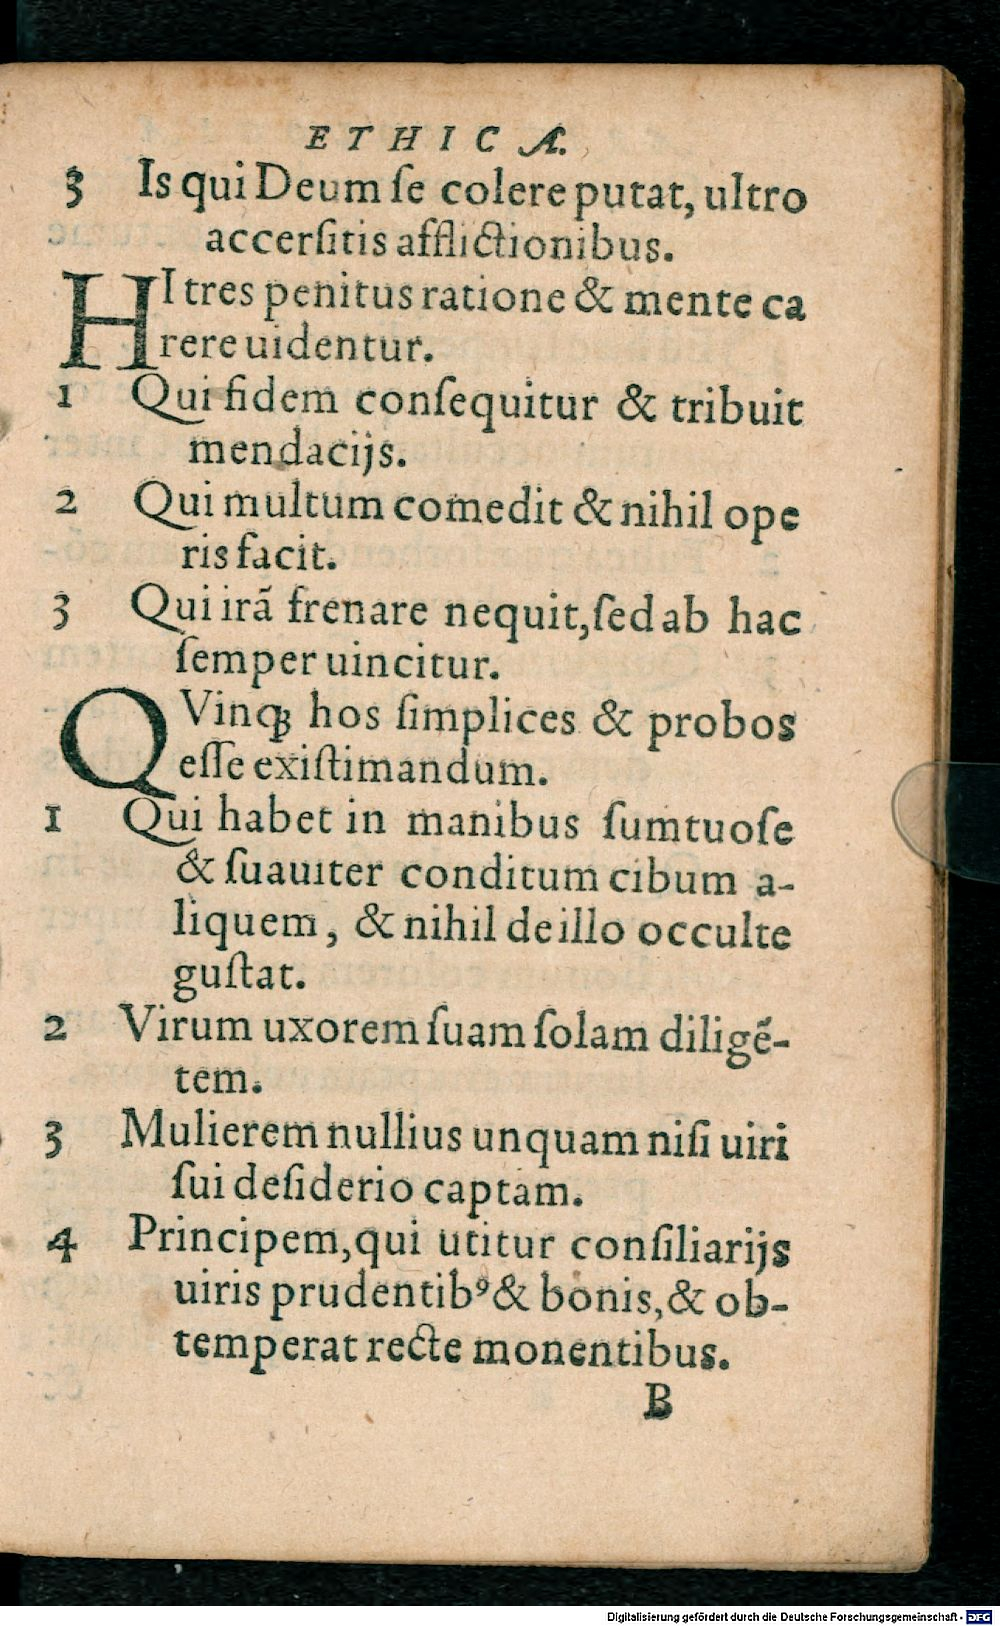 ETHICA.
3 Is qui Deum ſe colere putat, ultro
accerſitis afflictionibus.
HI tres penitus ratione & mente ca
rere uidentur.
1 Qui fidem conſequitur & tribuit
mendacijs.
2 Qui multum comedit & nihil ope
ris facit.
3 Qui irã frenare nequit, ſed ab hac
ſemper uincitur.
QVinqꝫ hos ſimplices & probos
eſſe exiſtimandum.
1 Qui habet in manibus ſumtuoſe
& ſuauiter conditum cibum a-
liquem, & nihil de illo occulte
guſtat.
2 Virum uxorem ſuam ſolam diligẽ-
tem.
3 Mulierem nullius unquam niſi uiri
ſui deſiderio captam.
4 Principem, qui utitur conſiliarijs
uiris prudentibꝰ & bonis, & ob-
temperat recte monentibus.
B
Digitalisierung gefördert durch die Deutsche Forschungsgemeinschaft - DFG